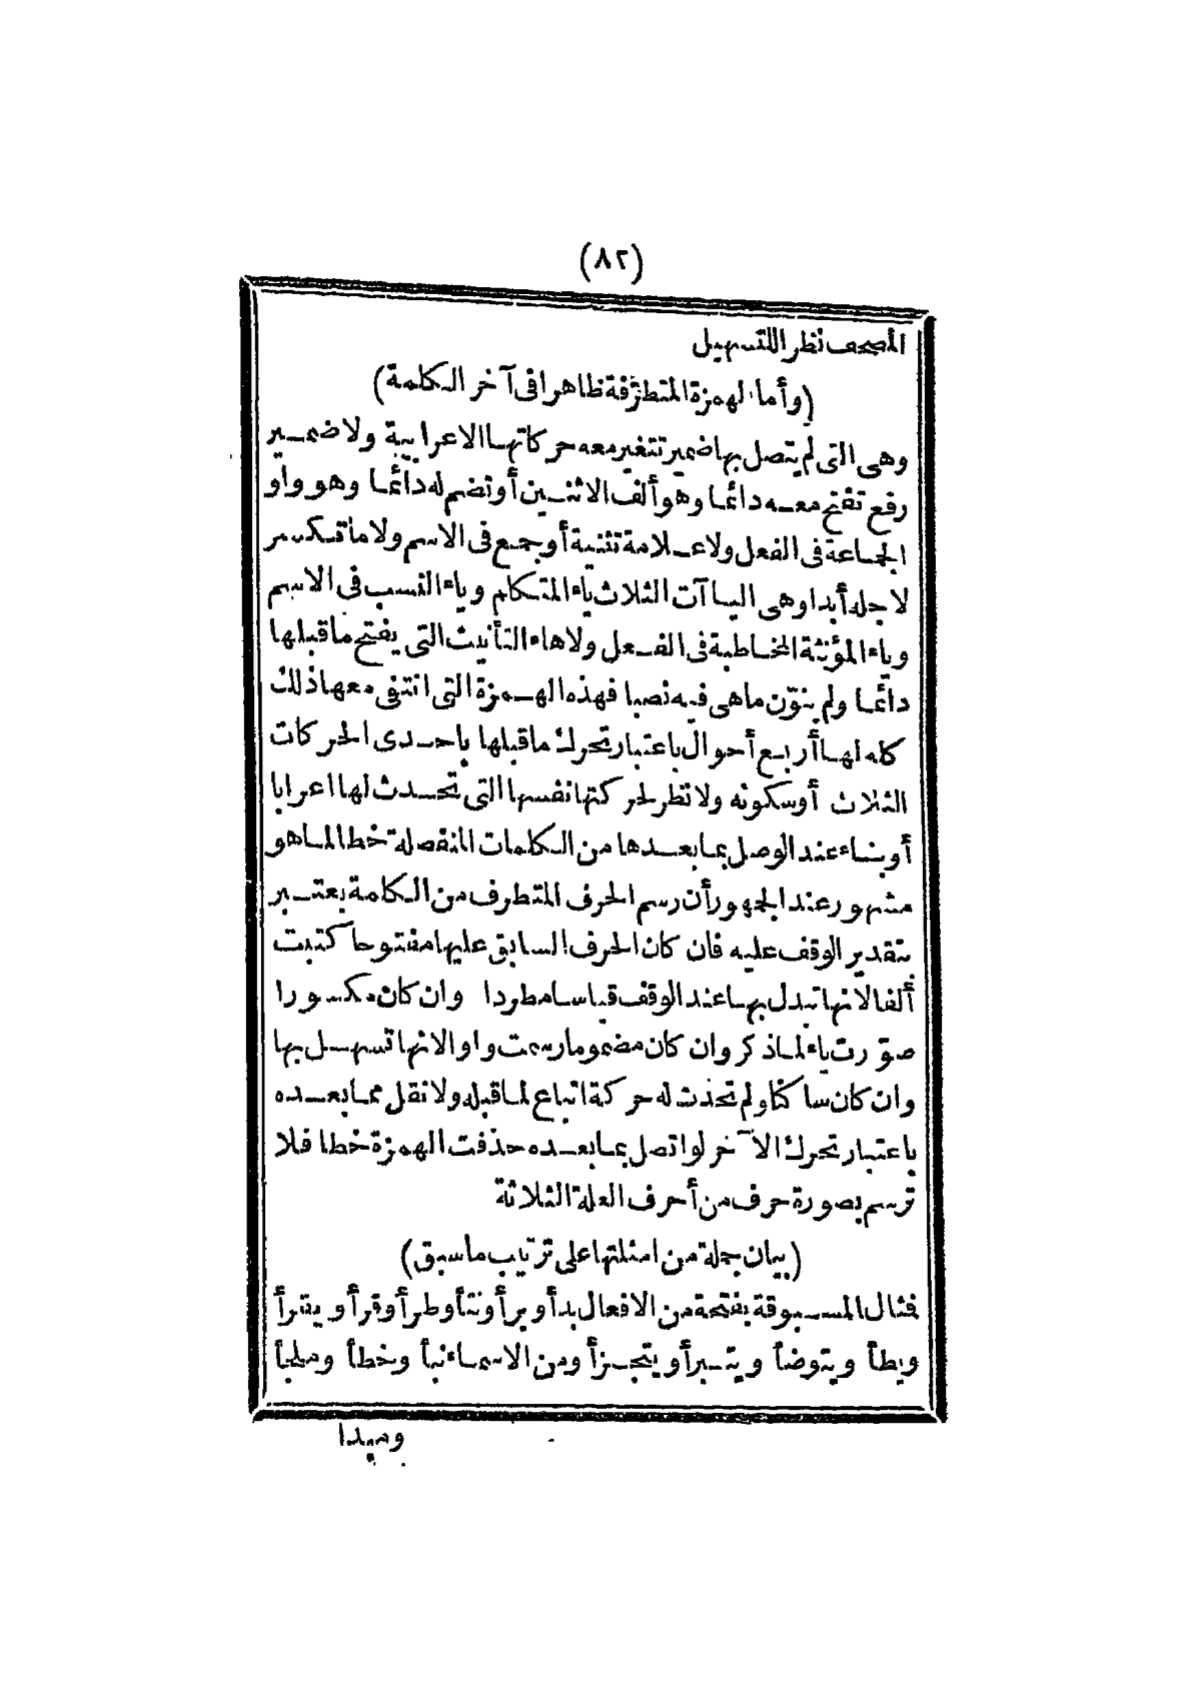 (٨٢)
المصحف نظر اللتسهيل
(وأما الهمزة المتطرّفة ظاهرا فى آخر الكلمة)
وهى التى لم يتصل بها ضمير تتغير معه حركاتها الاعرابية ولا ضمير
رفع تفتح معه دائما وهو ألف الاثنين أو تضم له دائما وهو واو
الجماعة فى الفعل ولا علامة تثنية أو جمع فى الاسم ولا ما تكسر
لاجله أبدا وهى الياآت الثلاث ياء المتكلم وياء النسب فى الاسم
وياء المؤنثة المخاطبة فى الفعل ولا هاء التأنيث التى يفتح ما قبلها
دائما ولم ينوّن ما هى فيه نصبا فهذه الهمزة التى انتفى معها ذلك
كله لها أربع أحوال باعتبار تحرك ما قبلها باحدى الحركات
الثلاث أوسكونه ولا نظر لحركتها نفسها التى تحدث لها اعرابا
أو بناء عند الوصل بما بعدها من الكلمات المنفصلة خطا لما هو
مشهور عند الجمهور أن رسم الحرف المتطرف من الكلمة يعتبر
بتقدير الوقف عليه فان كان الحرف السابق عليها مفتوحا كتبت
ألفا لانها تبدل بها عند الوقف قياسا مطردا وان كان مكسورا
صوّرت ياء لما ذكر وان كان مضموما رسمت واوا لانها تسهل بها
وان كان ساكنا ولم تحدث له حركة اتباع لما قبله ولا نقل مما بعده
باعتبار تحرك الآخر لو اتصل بما بعده حذفت الهمزة خطا فلا
ترسم بصورة حرف من أحرف العلة الثلاثة
(بيان جملة من امثلتها على ترتيب ما سبق)
فمثال المسبوقة بفتحة من الافعال بدأ وبرأ ونتأ وطرأ وقرأ ويقرأ
ويطأ ويتوضأ ويتبرأ ويتجزأ ومن الاسماء نبأ وخطأ وملجأ
ومبدا